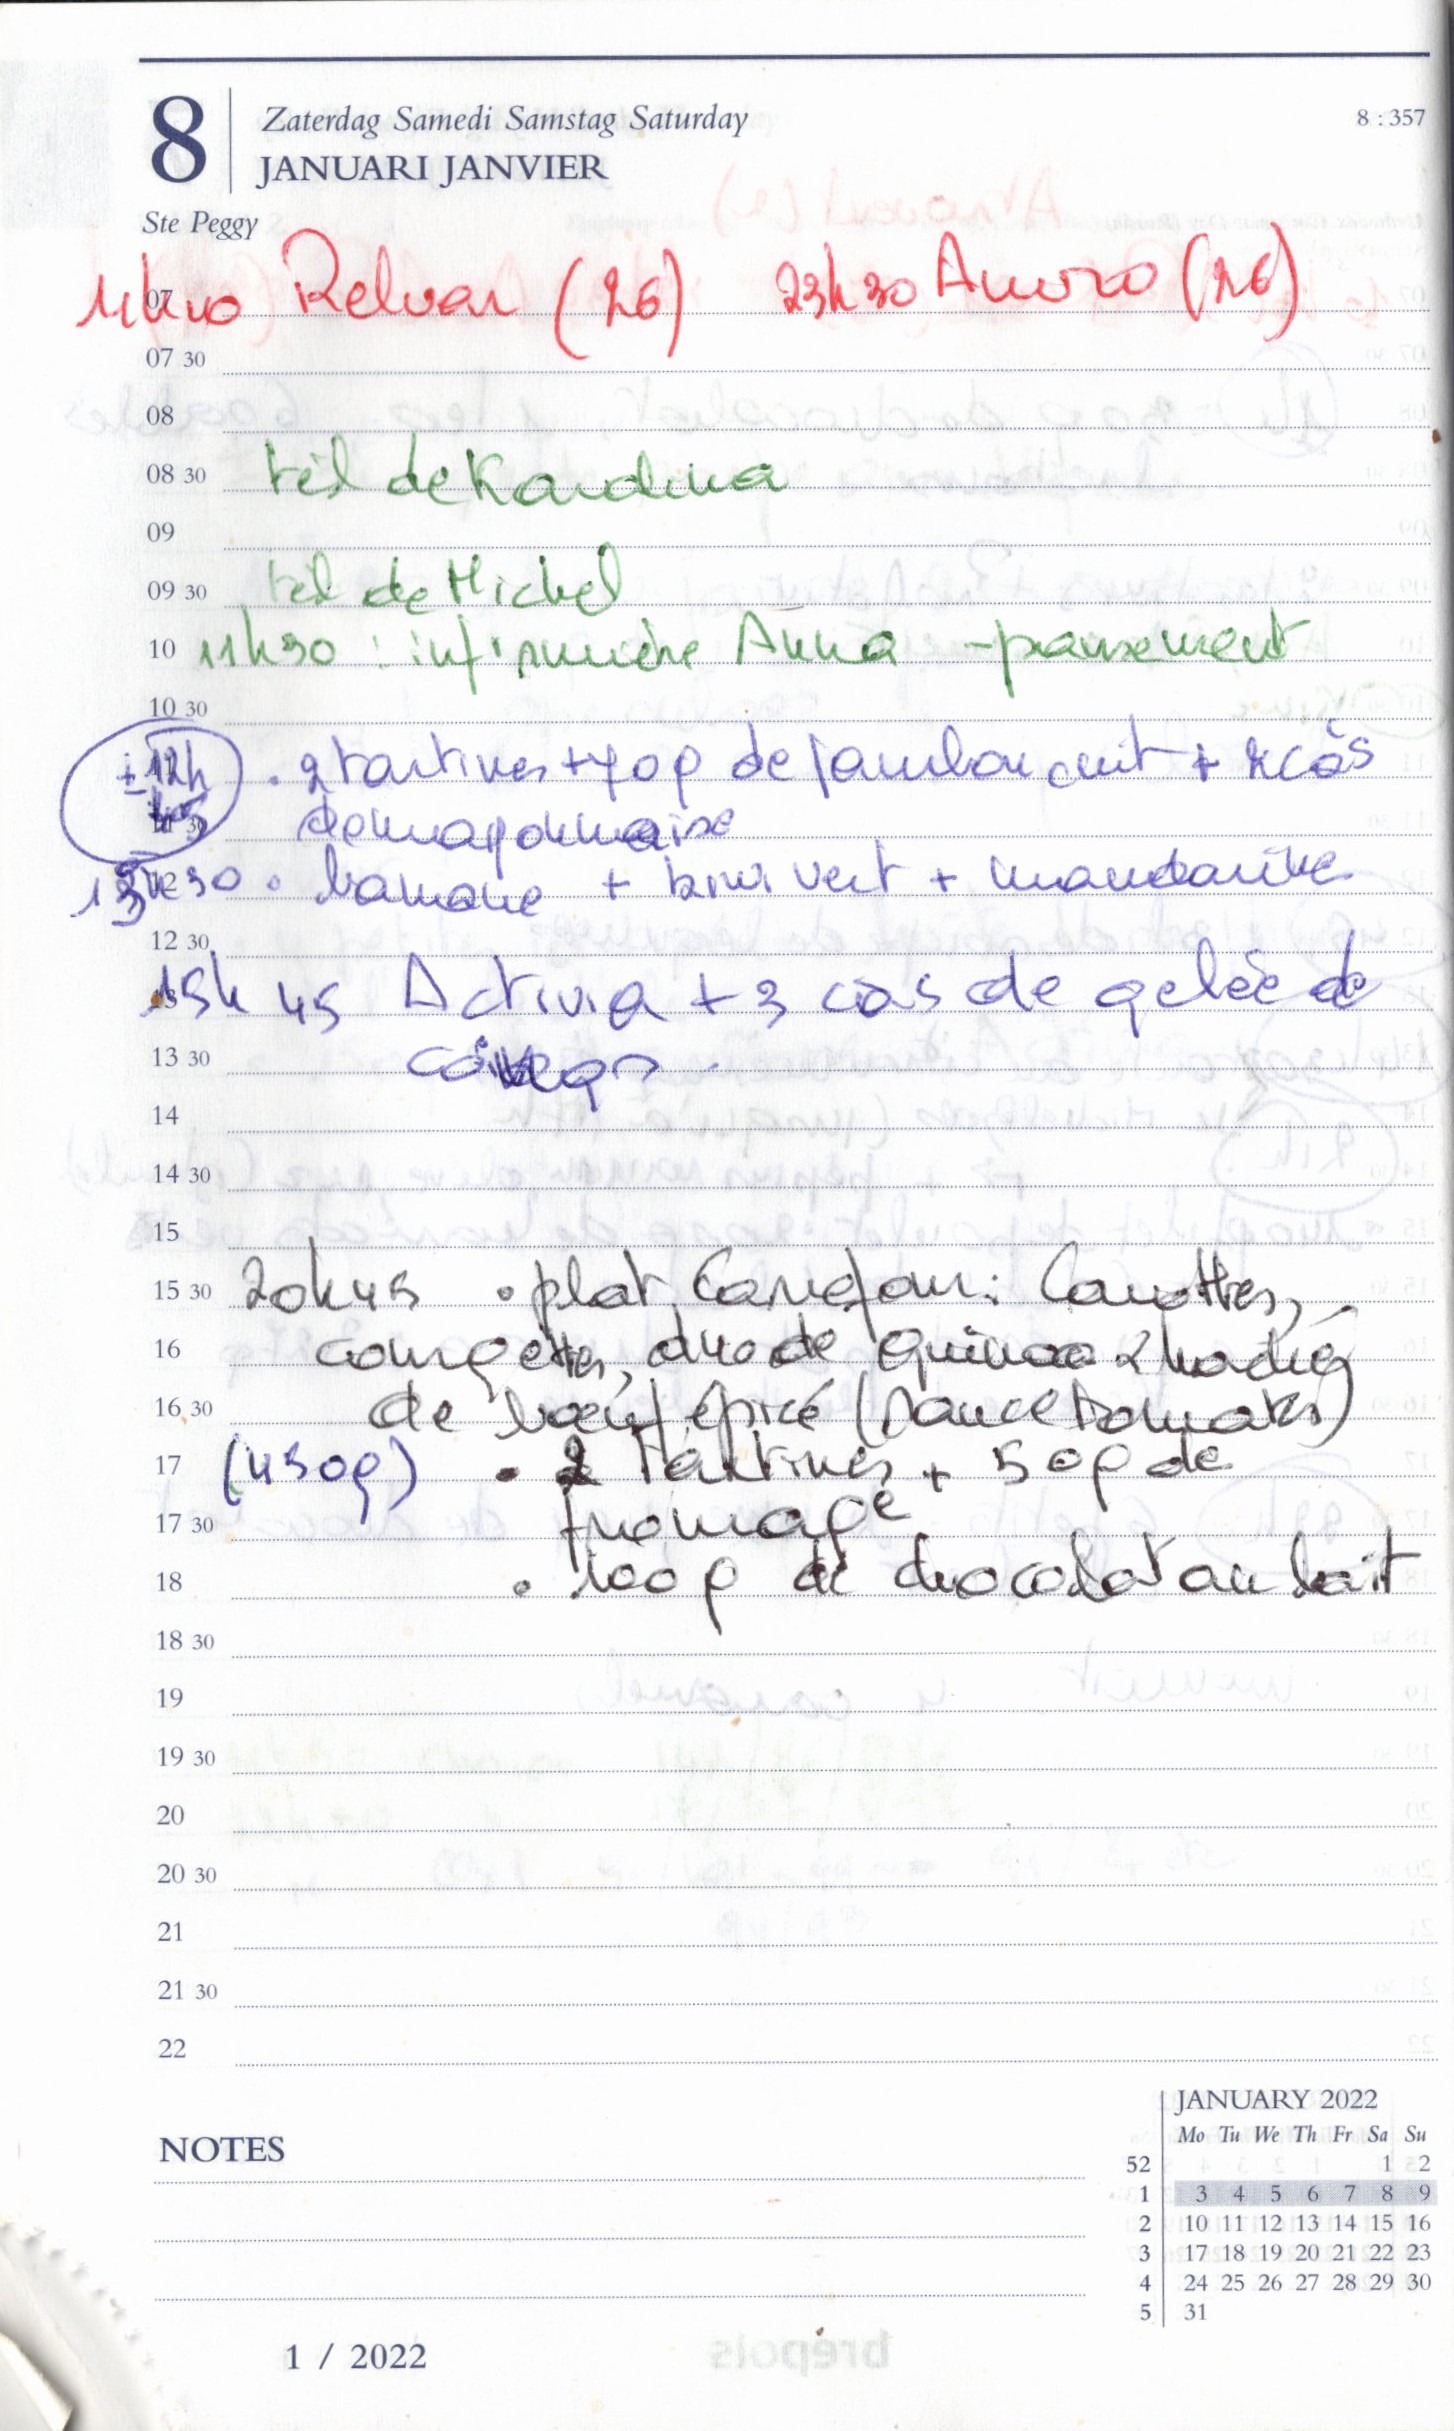 8
Zaterdag Samedi Samstag Saturday
8 : 357
JANUARI JANVIER
Ste Peggy
07
11h10 Relvar (26) 23h30 Anoro (26)
07 30
08
08 30 tél de Kardina
09
09 30 tél de Michel
10 11h30 : infirmière Anna - pansement
10 30
± 12h . 2 tartines + 70g de jambon cuit + 2 càs
11 30 de mayonnaise
12
13h30 . banane + kiwi vert + mandarine
12 30
13
15h45 Activia + 3 càs de gelée de
13 30 coings
14
14 30
15
15 30 20h45 . plat Carrefour : Carottes,
16 courgettes, duo de quinoa & haché
16 30 de bœuf épicé (sauce tomates)
17 (450g) . 2 tartines + 50g de
17 30 fromage
18 . 100g de chocolat au lait
18 30
19
19 30
20
20 30
21
21 30
22
NOTES
JANUARY 2022
Mo Tu We Th Fr Sa Su
52 1 2
1 3 4 5 6 7 8 9
2 10 11 12 13 14 15 16
3 17 18 19 20 21 22 23
4 24 25 26 27 28 29 30
5 31
1 / 2022
brepols